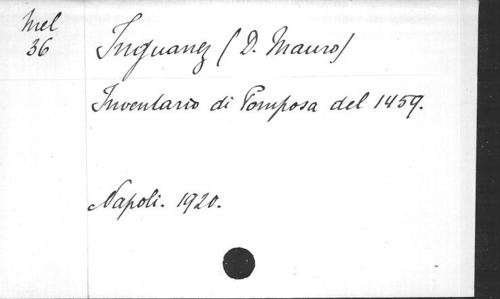 Mel
36
Inguanez (D. Mauro)
Inventario di Pomposa del 1459.
Napoli. 1920.